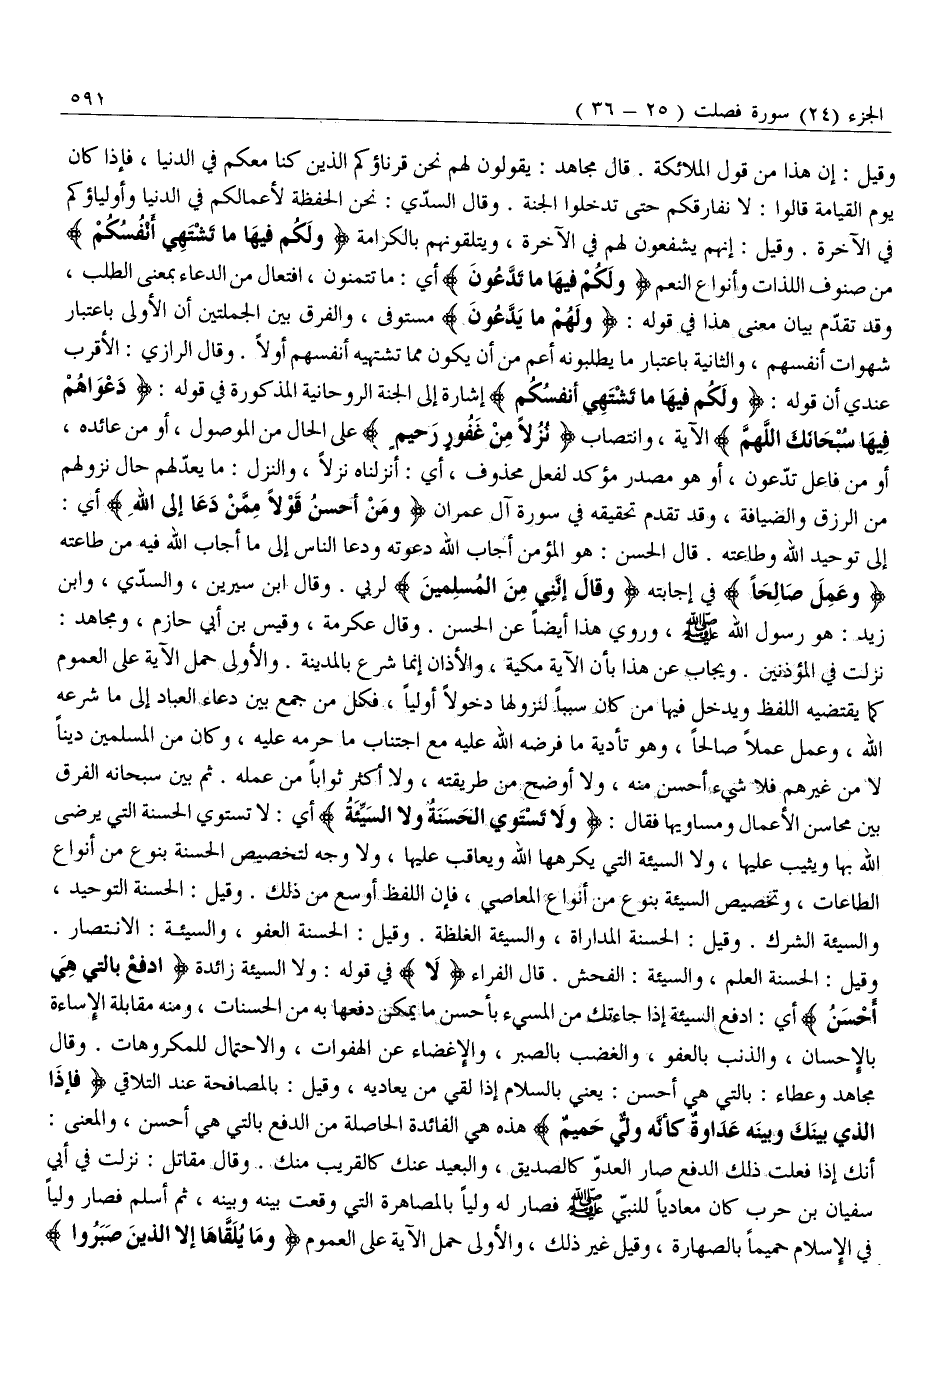 الجزء (٢٤) سورة فصلت (٢٥ – ٣٦) ٥٩١
وقيل : إن هذا من قول الملائكة . قال مجاهد : يقولون لهم نحن قرناؤكم الذين كنا معكم في الدنيا ، فإذا كان
يوم القيامة قالوا : لا نفارقكم حتى تدخلوا الجنة . وقال السدّي : نحن الحفظة لأعمالكم في الدنيا وأولياؤكم
في الآخرة . وقيل : إنهم يشفعون لهم في الآخرة ، ويتلقونهم بالكرامة ﴿ ولَكُم فيهَا ما تَشْتَهِي أَنْفُسُكُمْ ﴾
من صنوف اللذات وأنواع النعم ﴿ ولَكُمْ فيهَا ما تَدَّعُونَ ﴾ أي : ما تتمنون ، افتعال من الدعاء بمعنى الطلب ،
وقد تقدّم بيان معنى هذا في قوله : ﴿ ولَهُمْ ما يَدَّعُونَ ﴾ مستوفى ، والفرق بين الجملتين أن الأولى باعتبار
شهوات أنفسهم ، والثانية باعتبار ما يطلبونه أعم من أن يكون مما تشتهيه أنفسهم أولاً . وقال الرازي : الأقرب
عندي أن قوله : ﴿ ولَكُم فيهَا ما تَشْتَهِي أنفسُكُم ﴾ إشارة إلى الجنة الروحانية المذكورة في قوله : ﴿ دَعْوَاهُمْ
فِيهَا سُبْحَانَكَ اللَّهمَّ ﴾ الآية ، وانتصاب ﴿ نُزُلاً مِنْ غَفُورٍ رَحيمٍ ﴾ على الحال من الموصول ، أو من عائده ،
أو من فاعل تدّعون ، أو هو مصدر مؤكد لفعل محذوف ، أي : أنزلناه نزلاً ، والنزل : ما يعدّلهم حال نزولهم
من الرزق والضيافة ، وقد تقدم تحقيقه في سورة آل عمران ﴿ ومَنْ أحسنُ قَوْلاً مِمَّنْ دَعَا إلى اللهِ ﴾ أي :
إلى توحيد الله وطاعته . قال الحسن : هو المؤمن أجاب الله دعوته ودعا الناس إلى ما أجاب الله فيه من طاعته
﴿ وعَمِلَ صَالِحَاً ﴾ في إجابته ﴿ وقالَ إنَّنِي مِنَ المُسلِمينَ ﴾ لربي . وقال ابن سيرين ، والسدّي ، وابن
زيد : هو رسول الله ﷺ ، وروي هذا أيضاً عن الحسن . وقال عكرمة ، وقيس بن أبي حازم ، ومجاهد :
نزلت في المؤذنين . ويجاب عن هذا بأن الآية مكية ، والأذان إنما شرع بالمدينة . والأولى حمل الآية على العموم
كما يقتضيه اللفظ ويدخل فيها من كان سبباً لنزولها دخولاً أولياً ، فكل من جمع بين دعاء العباد إلى ما شرعه
الله ، وعمل عملاً صالحاً ، وهو تأدية ما فرضه الله عليه مع اجتناب ما حرمه عليه ، وكان من المسلمين ديناً
لا من غيرهم فلا شيء أحسن منه ، ولا أوضح من طريقته ، ولا أكثر ثواباً من عمله . ثم بين سبحانه الفرق
بين محاسن الأعمال ومساويها فقال : ﴿ ولَا تَسْتَوِي الحَسَنَةُ ولا السَيِّئَةُ ﴾ أي : لا تستوي الحسنة التي يرضى
الله بها ويثيب عليها ، ولا السيئة التي يكرهها الله ويعاقب عليها ، ولا وجه لتخصيص الحسنة بنوع من أنواع
الطاعات ، وتخصيص السيئة بنوع من أنواع المعاصي ، فإن اللفظ أوسع من ذلك . وقيل : الحسنة التوحيد ،
والسيئة الشرك . وقيل : الحسنة المداراة ، والسيئة الغلظة . وقيل : الحسنة العفو ، والسيئة : الانتصار .
وقيل : الحسنة العلم ، والسيئة : الفحش . قال الفراء ﴿ لَا ﴾ في قوله : ولا السيئة زائدة ﴿ ادفعْ بالتي هِيَ
أَحْسَنُ ﴾ أي : ادفع السيئة إذا جاءتك من المسيء بأحسن ما يمكن دفعها به من الحسنات ، ومنه مقابلة الإساءة
بالإحسان ، والذنب بالعفو ، والغضب بالصبر ، والإغضاء عن الهفوات ، والاحتمال للمكروهات . وقال
مجاهد وعطاء : بالتي هي أحسن : يعني بالسلام إذا لقي من يعاديه ، وقيل : بالمصافحة عند التلاقي ﴿ فإذَا
الذي بينَكَ وبينَه عَدَاوةٌ كأنَّه وليٌّ حَميمٌ ﴾ هذه هي الفائدة الحاصلة من الدفع بالتي هي أحسن ، والمعنى :
أنك إذا فعلت ذلك الدفع صار العدوّ كالصديق ، والبعيد عنك كالقريب منك . وقال مقاتل : نزلت في أبي
سفيان بن حرب كان معادياً للنبيّ ﷺ فصار له ولياً بالمصاهرة التي وقعت بينه وبينه ، ثم أسلم فصار ولياً
في الإسلام حميماً بالصهارة ، وقيل غير ذلك ، والأولى حمل الآية على العموم ﴿ ومَا يُلَقَّاهَا إلا الذينَ صَبَرُوا ﴾